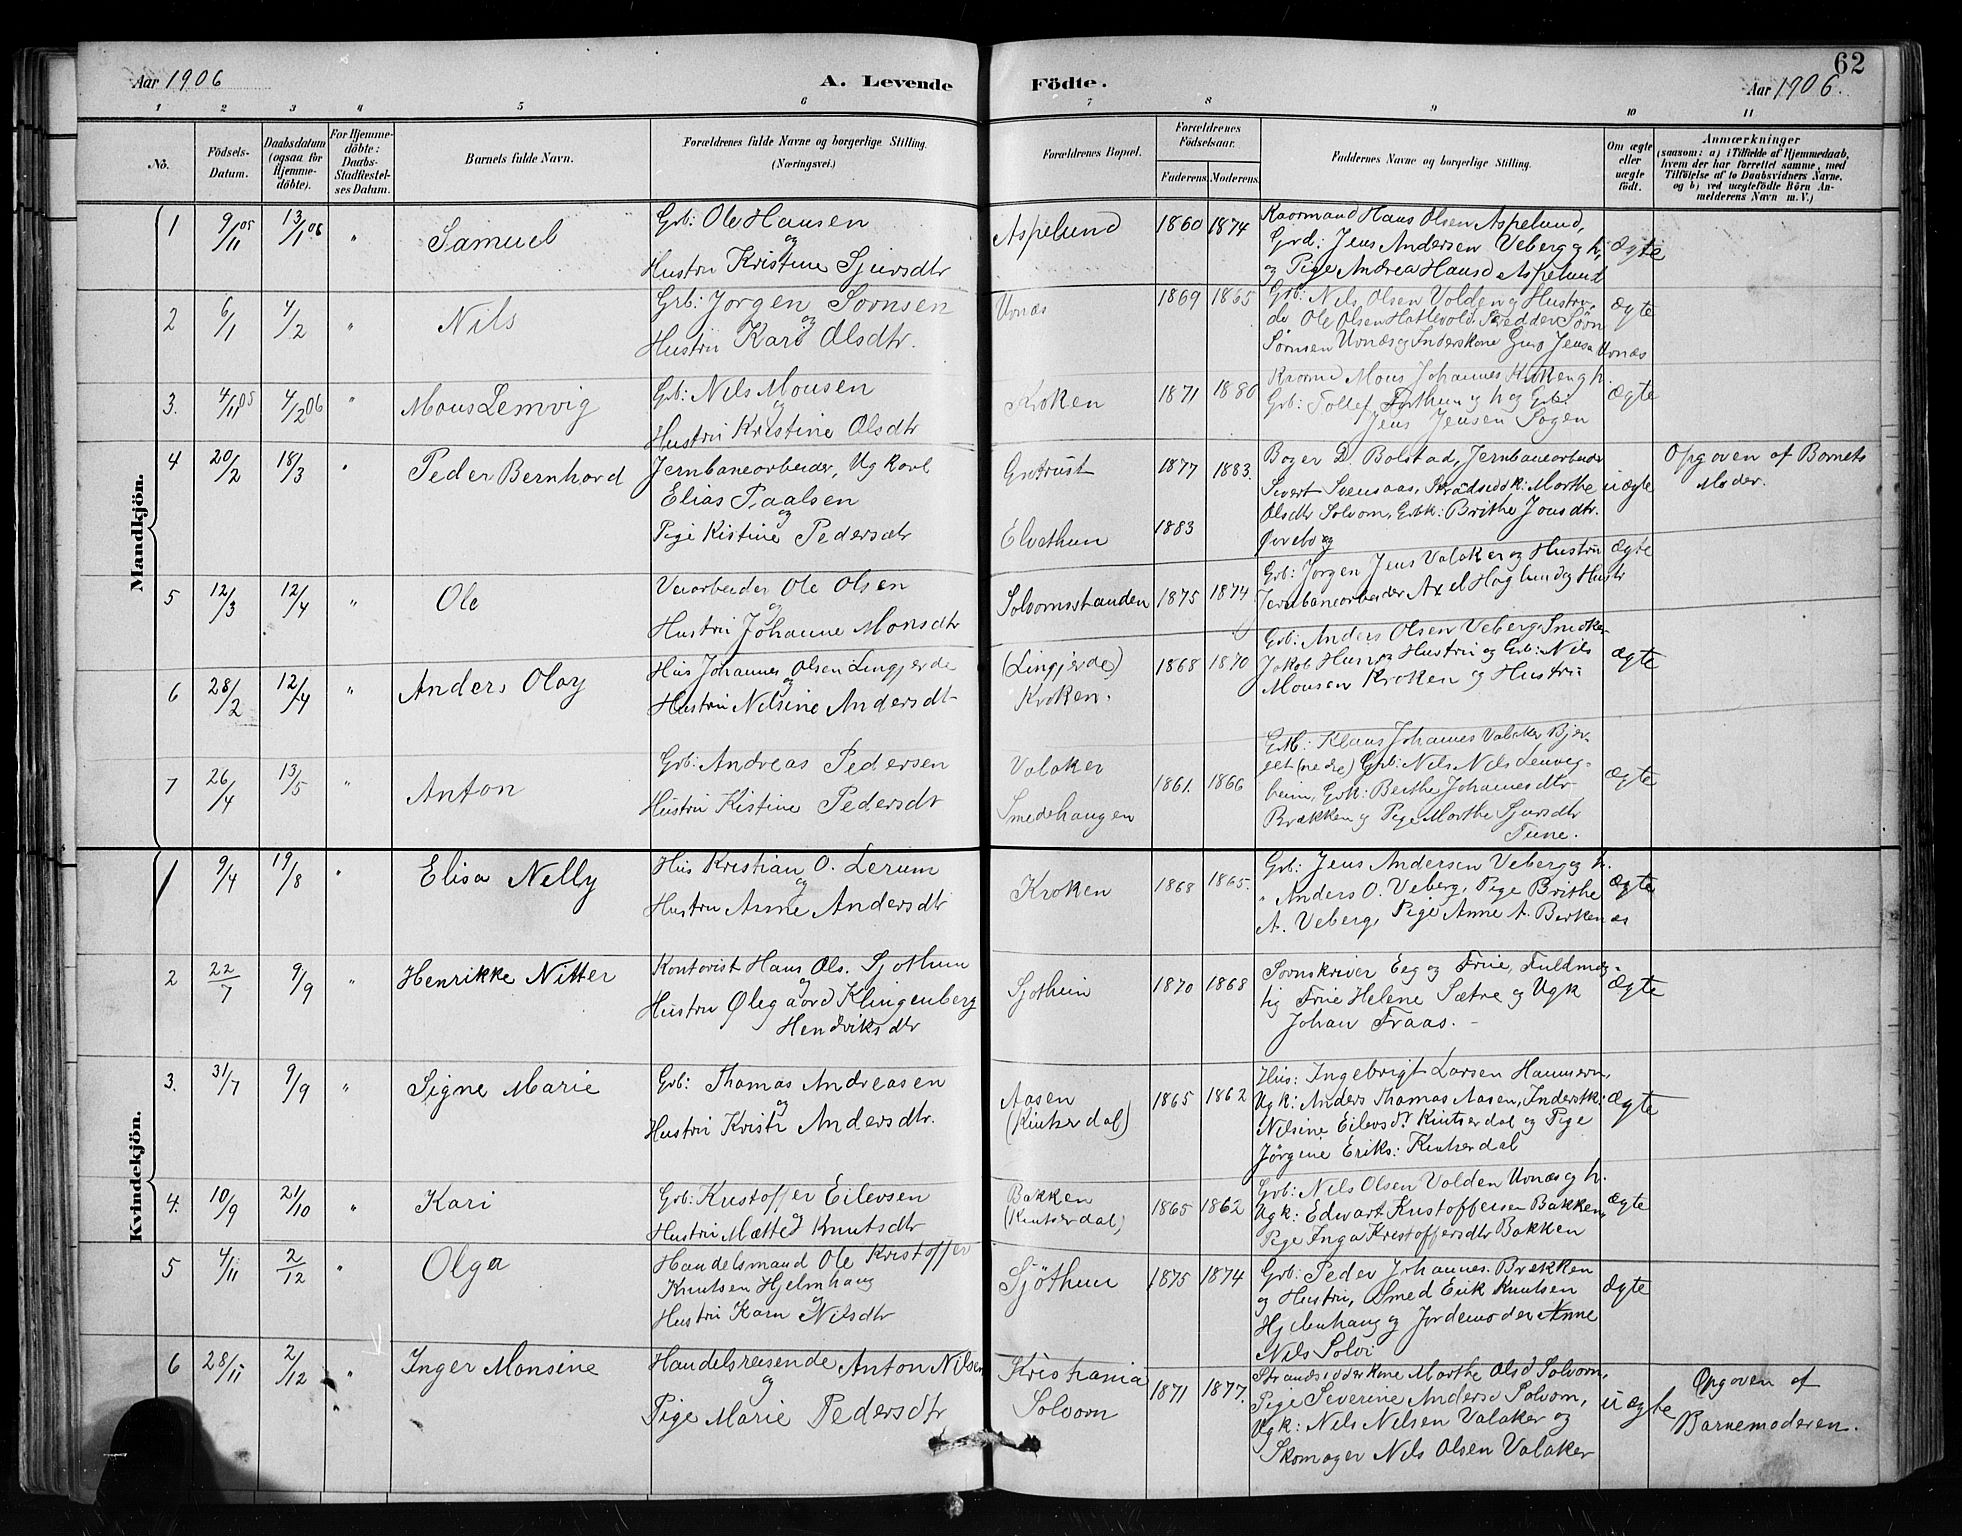 62
Aar 1906
A. Levende
Födte.
Aar 1906.
1 2 3 4 5 6 7 8 9 10 11
No.
Födsels-
Datum.
Daabsdatum
(ogsaa for
Hjemme-
döbte).
For Hjemme-
döbte:
Daabs-
Stadfestel-
ses Datum.
Barnets fulde Navn.
Forældrenes fulde Navne og borgerlige Stilling.
(Næringsvei.)
Forældrenes Bopæl.
Forældrenes
Födselsaar.
Faderens. Moderens.
Faddernes Navne og borgerlige Stilling.
Om ægte
eller
uægte
födt.
Anmærkninger
(saasom: a) i Tilfælde af Hjemmedaab,
hvem der har forrettet samme, med
Tilföielse af to Daabsvidners Navne,
og b) ved uægtefödte Börn An-
melderens Navn m. V.)
Mandkjön.
1 9/11 05 13/1 06 " Samuel
Grb: Ole Hansen
og
Hustru Kristine Sjursdtr
Aspelund 1860 1874
Kaarmand Hans Olsen Aspelund,
Grd: Jens Andersen Veberg og h,
og Pige Andrea Hansd Aspelund
ægte
2 6/1 4/2 " Nils
Grb: Jørgen Sørnsen
og
Hustru Kari Olsdtr.
Urnæs 1869 1865
Grb: Nils Olsen Volden og Hustru,
do Ole Olsen Hatlevold, Skredder Sørn
Sørnsen Urnæs og Inderskone Guro Jensd Urnæs
ægte
3. 4/11 05 4/2 06 " Mons Lemvig
Grb: Nils Monsen
og
Hustru Kristine Olsdtr
Kroken 1871 1880
Kaarmd Mons Johannes Kroken og h.
Grb: Tollef Forthun og h og Grb:
Jens Jensen Sogen
ægte
4 20/2 18/3 " Peder Bernhard
Jernbanearbeider, Ug Karl
Elias Paalsen
og
Pige Kistine Pedersdtr
1877 1883.
Elvethun 1883
Boger D. Bolstad, Jernbanearbeider
Sivert Svensaas, Strandsidk: Marthe
Olsdtr Solvorn, Grbk: Brithe Jonsdtr.
Øvebø og
uægte
Opgaven af Barnets
Moder.
5 12/3 12/4 " Ole
Veiarbeider Ole Olsen
og
Hustru Johanne Monsdtr
Solvornsstranden 1875 1874
Grb: Jørgen Jens Valaker og Hustru
Jernbanearbeider Axel Haglund og Hustr
ægte
6 28/2 12/4 " Anders Olay
Hus Johannes Olsen Lingjerde
og
Hustru Nilsine Andersdt
(Lingjerde)
Kroken. 1868 1870
Grb: Anders Olsen Veberg, Snedker
Jakob Hunn, Hustru og Grb: Nils
Monsen Kroken og Hustru
ægte
7 26/4 13/5 " Anton
Grb: Andreas Pedersen
Hustru Kistine Pedersdt
Valaker
Smedehaugen 1861. 1866
Grb: Klaus Johannes Valaker Bjer-
get (nedre) Grb: Nils Nils Lenveg-
heim, Grbk: Berthe Johannesdtr
Brækken og Pige Marthe Sjursdtr
Tune.
ægte
Kvindekjön.
1 9/4 19/8 " Elisa Nelly
Hus Kristian O. Lerum
og
Hustru Anne Andersdtr
Kroken 1868 1865.
Grb: Jens Andersen Veberg og h.
" Anders O. Veberg, Pige Brithe
A. Veberg, Pige Anne A. Berkenæs
ægte
2 22/7 9/9 " Henrikke Nitter
Kontorist Hans Ols. Sjøthun
og
Hustru Ølegaard Klingenberg
Hendriksdtr
Sjøthun 1870 1868
Sorenskriver Eeg og Frue, Fuldmæg-
tig Frue Helene Sætre og Ugk
Johan Fraas. -
ægte
3. 31/7 9/9 " Signe Marie
Grb: Thomas Andreasen
og
Hustru Kristi Andersdtr.
Aasen
(Kinserdal) 1865 1862
Hus: Ingebrigt Larsen Hammern,
Ugk: Anders Thomas Aasen, Inderstk:
Nilsine Eilevsdt Kinserdal og Pige
Jørgine Eriks: Kinserdal
ægte
4. 10/9 21/10 " Kari
Grb: Kristoffer Eilevsen
og
Hustru Mætte Knutsdtr
Bakken
(Kinserdal) 1865 1862
Grb: Nils Olsen Volden Urnæs og h.
Ugk: Edvart Kristoffersen Bakken,
Pige Inga Kristoffersdtr Bakken
ægte
5 4/11 2/12 " Olga
Handelsmand Ole Kristoffer
Knutsen Hjelmhaug
og
Hustru Karn Nilsdtr
Sjøthun 1875 1874
Grb: Peder Johannes. Brækken
og Hustru, Smed Erik Knutsen
Hjelmhaug og Jordemoder Anne
Nils Solvi
ægte
6 28/11 2/12 " Inger Monsine
Handelsreisende Anton Nilsen
og
Pige Marie Pedersdtr
Kristiania
Solvorn 1871 1877.
Strandsidderkone Marthe Olsd Solvorn,
Pige Severine Andersd Solvorn,
Ugk: Nils Nilsen Valaker og
Skomager Nils Olsen Valaker
uægte
Opgaven af
Barnemoderen.